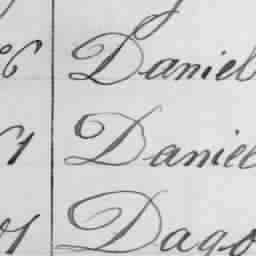 Daniel
Daniel
Dago